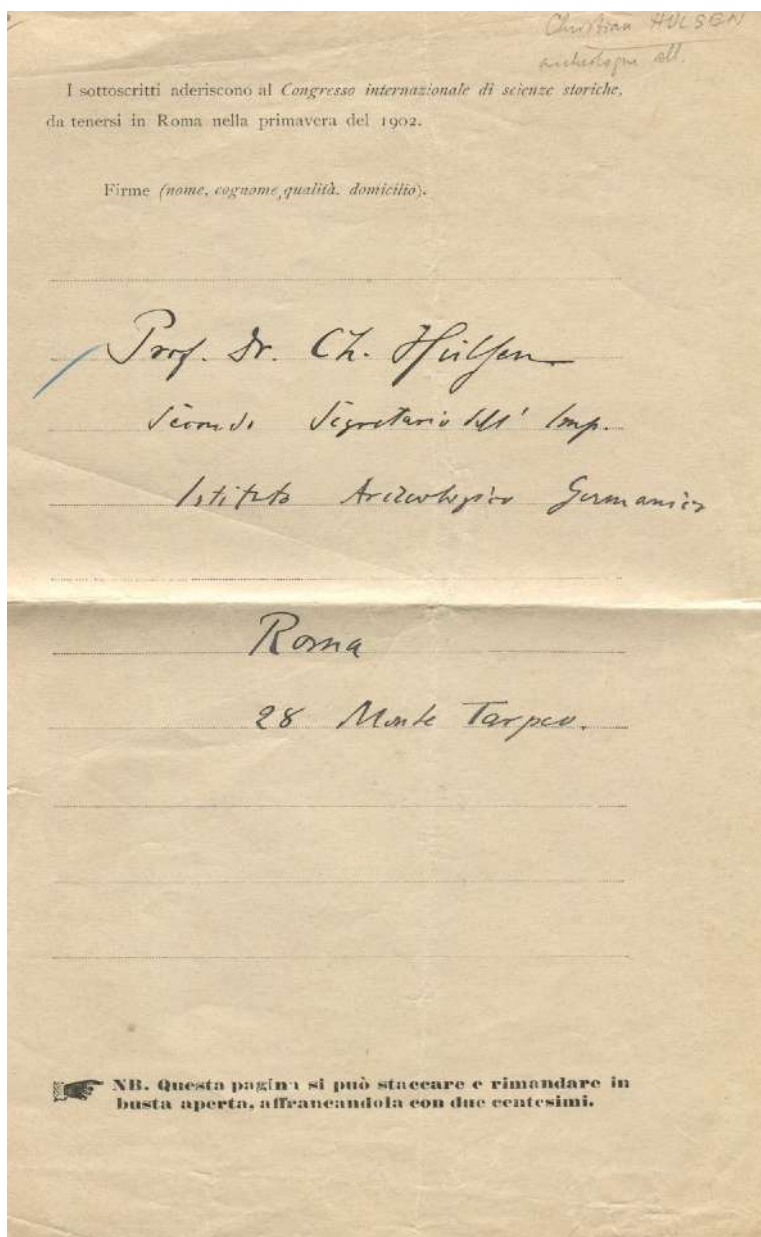 Christian HÜLSEN
archéologue all.
I sottoscritti aderiscono al Congresso internazionale di scienze storiche,
da tenersi in Roma nella primavera del 1902.
Firme (nome, cognome, qualità, domicilio).
Prof. Dr. Ch. Hülsen
Secondo Segretario dell' Imp.
Istituto Archeologico Germanico
Roma
28 Monte Tarpeo.
NB. Questa pagina si può staccare e rimandare in
busta aperta, affrancandola con due centesimi.